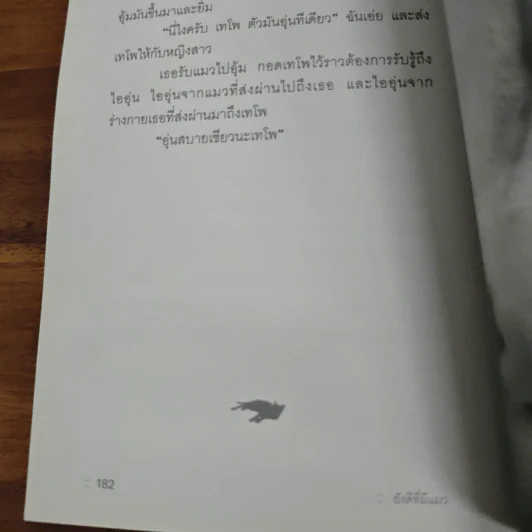 อุ้มมันขึ้นมาและยิ้ม
“นี่ไงครับ เทโพ ตัวมันอุ่นทีเดียว” ฉันเอ่ย และส่ง
เทโพให้กับหญิงสาว
เธอรับแมวไปอุ้ม กอดเทโพไว้ราวต้องการรับรู้ถึง
ไออุ่น ไออุ่นจากแมวที่ส่งผ่านไปถึงเธอ และไออุ่นจาก
ร่างกายเธอที่ส่งผ่านมาถึงเทโพ
“อุ่นสบายเชียวนะเทโพ”
182